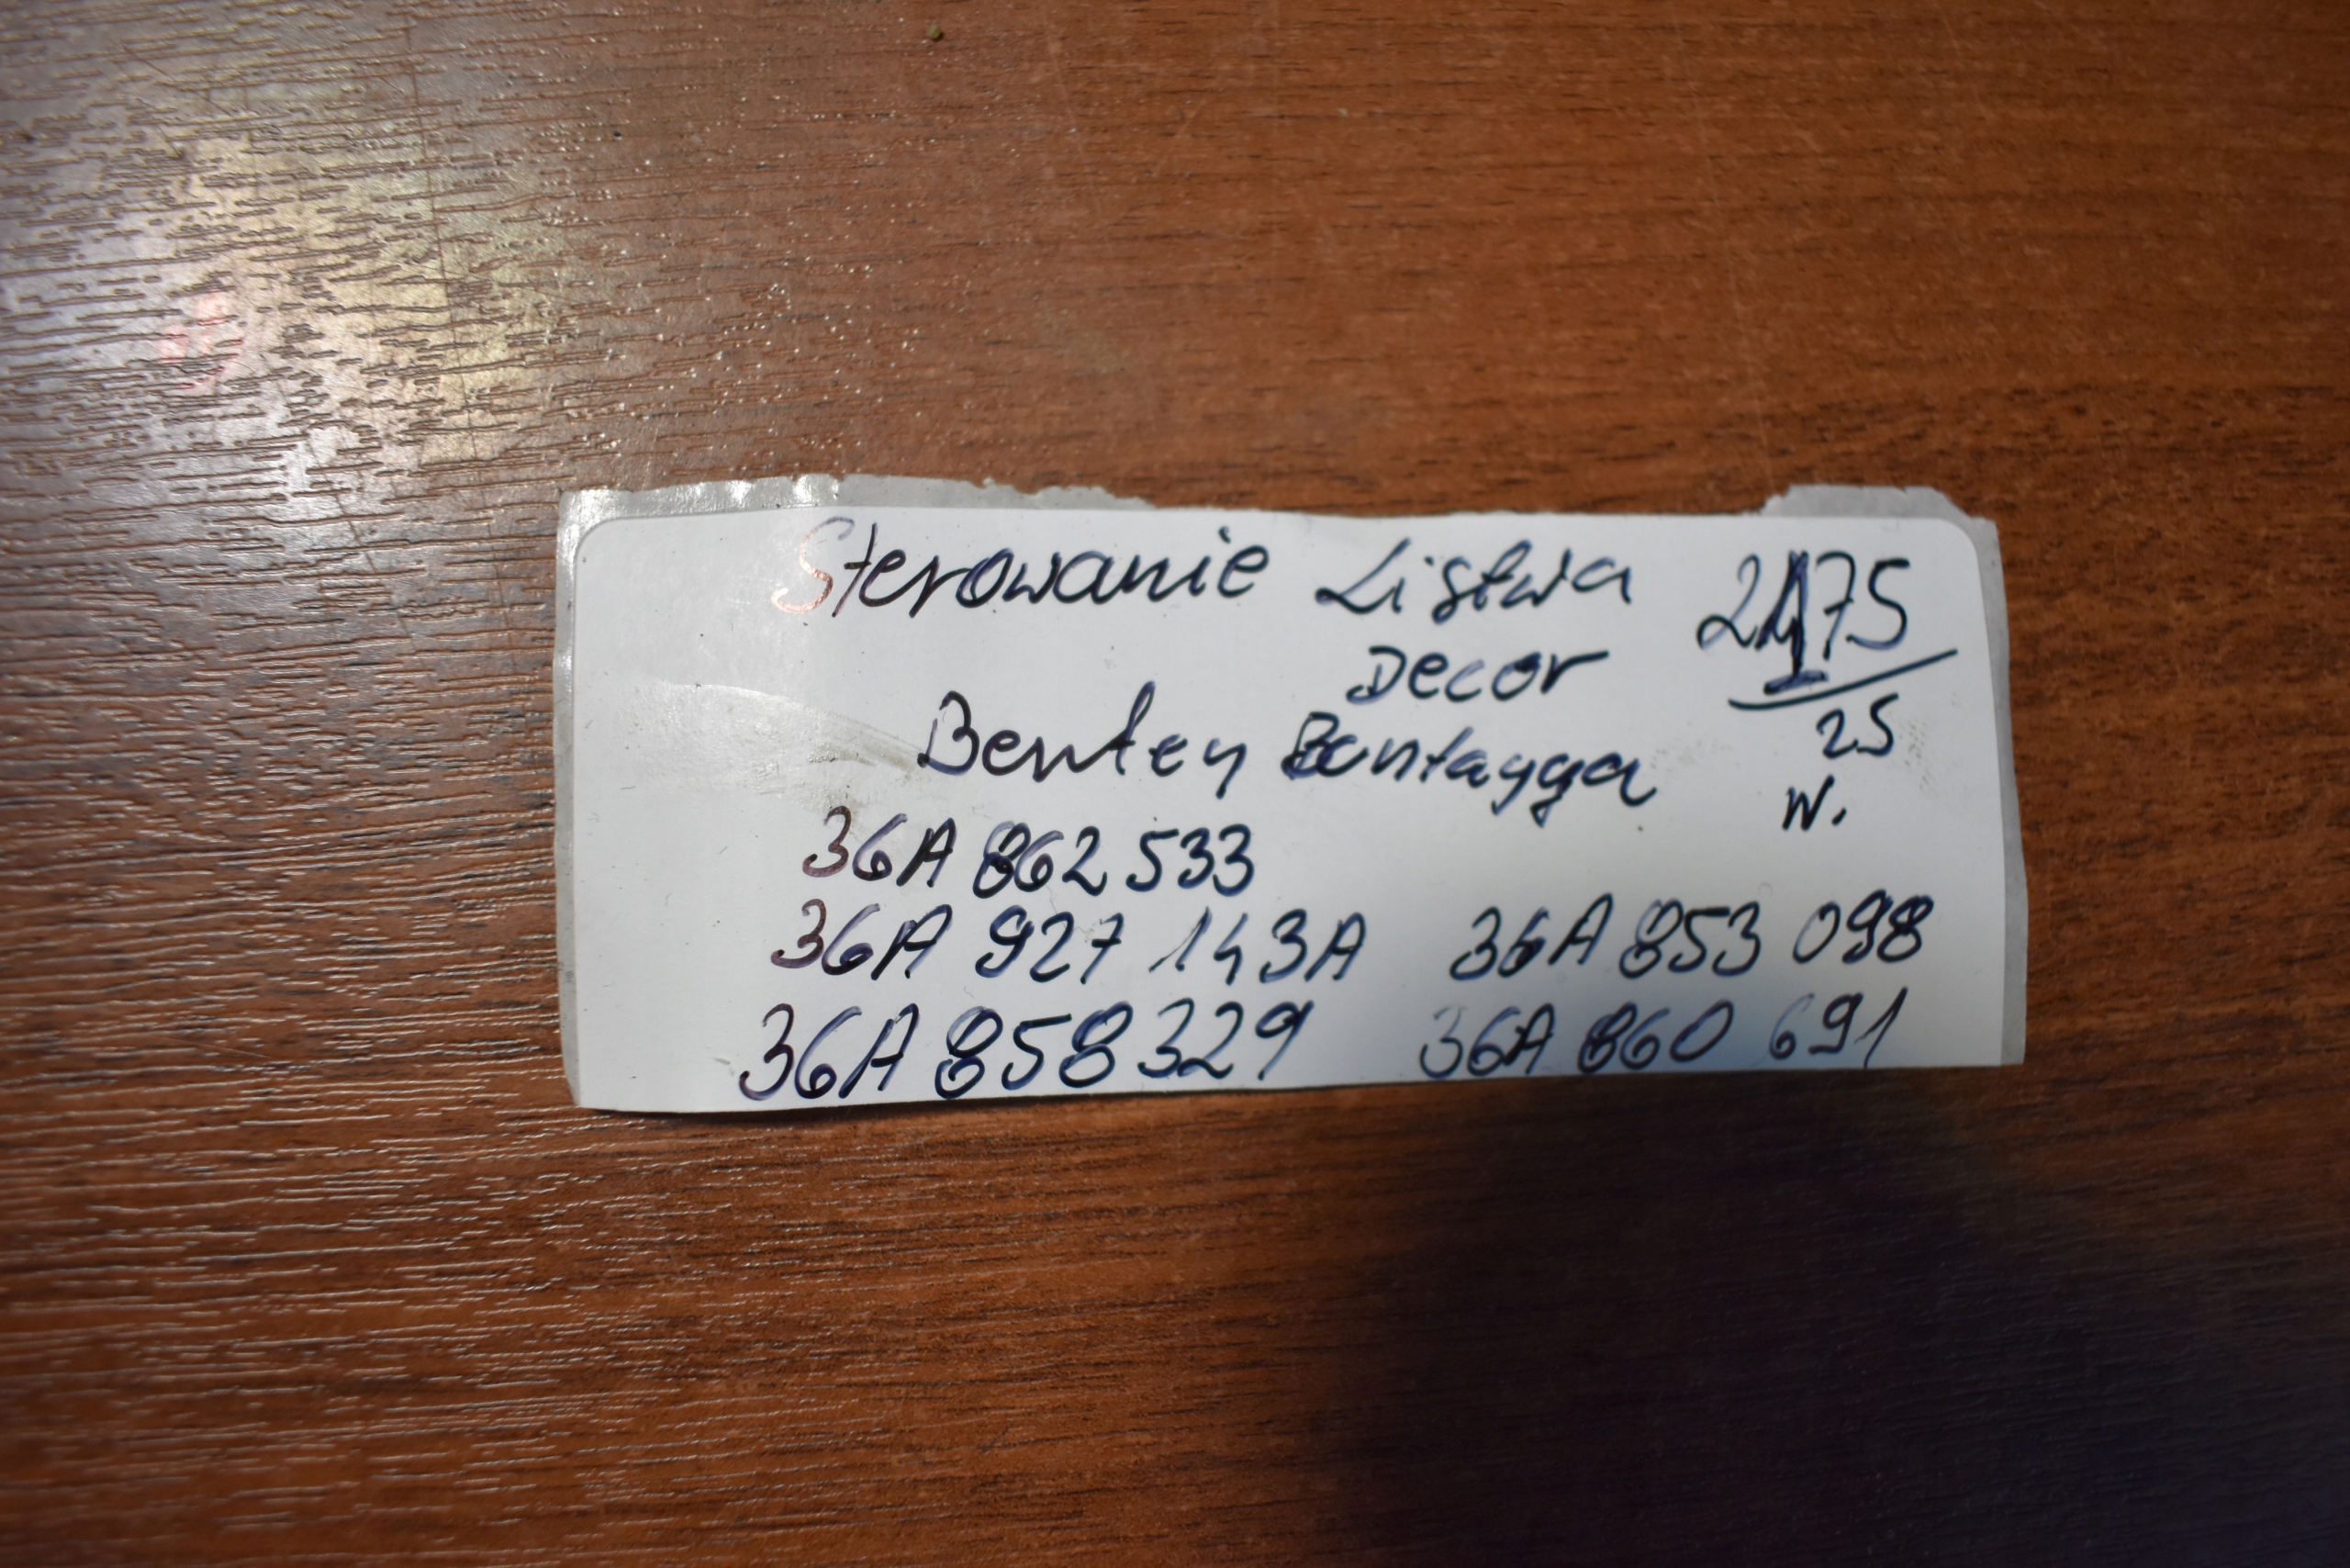 Sterowanie Listwa
Decor
Bentey Bentayga
2175
25
W.
36A 862 533
36A 927 143A 36A 853 098
36A 858 329 36A 860 691